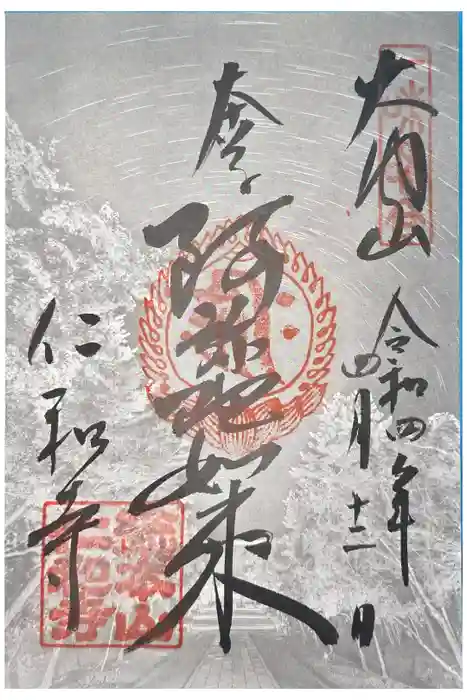 大内山
令和四年
四月十二日
奉
阿弥陀如来
仁和寺
総本山
仁和寺